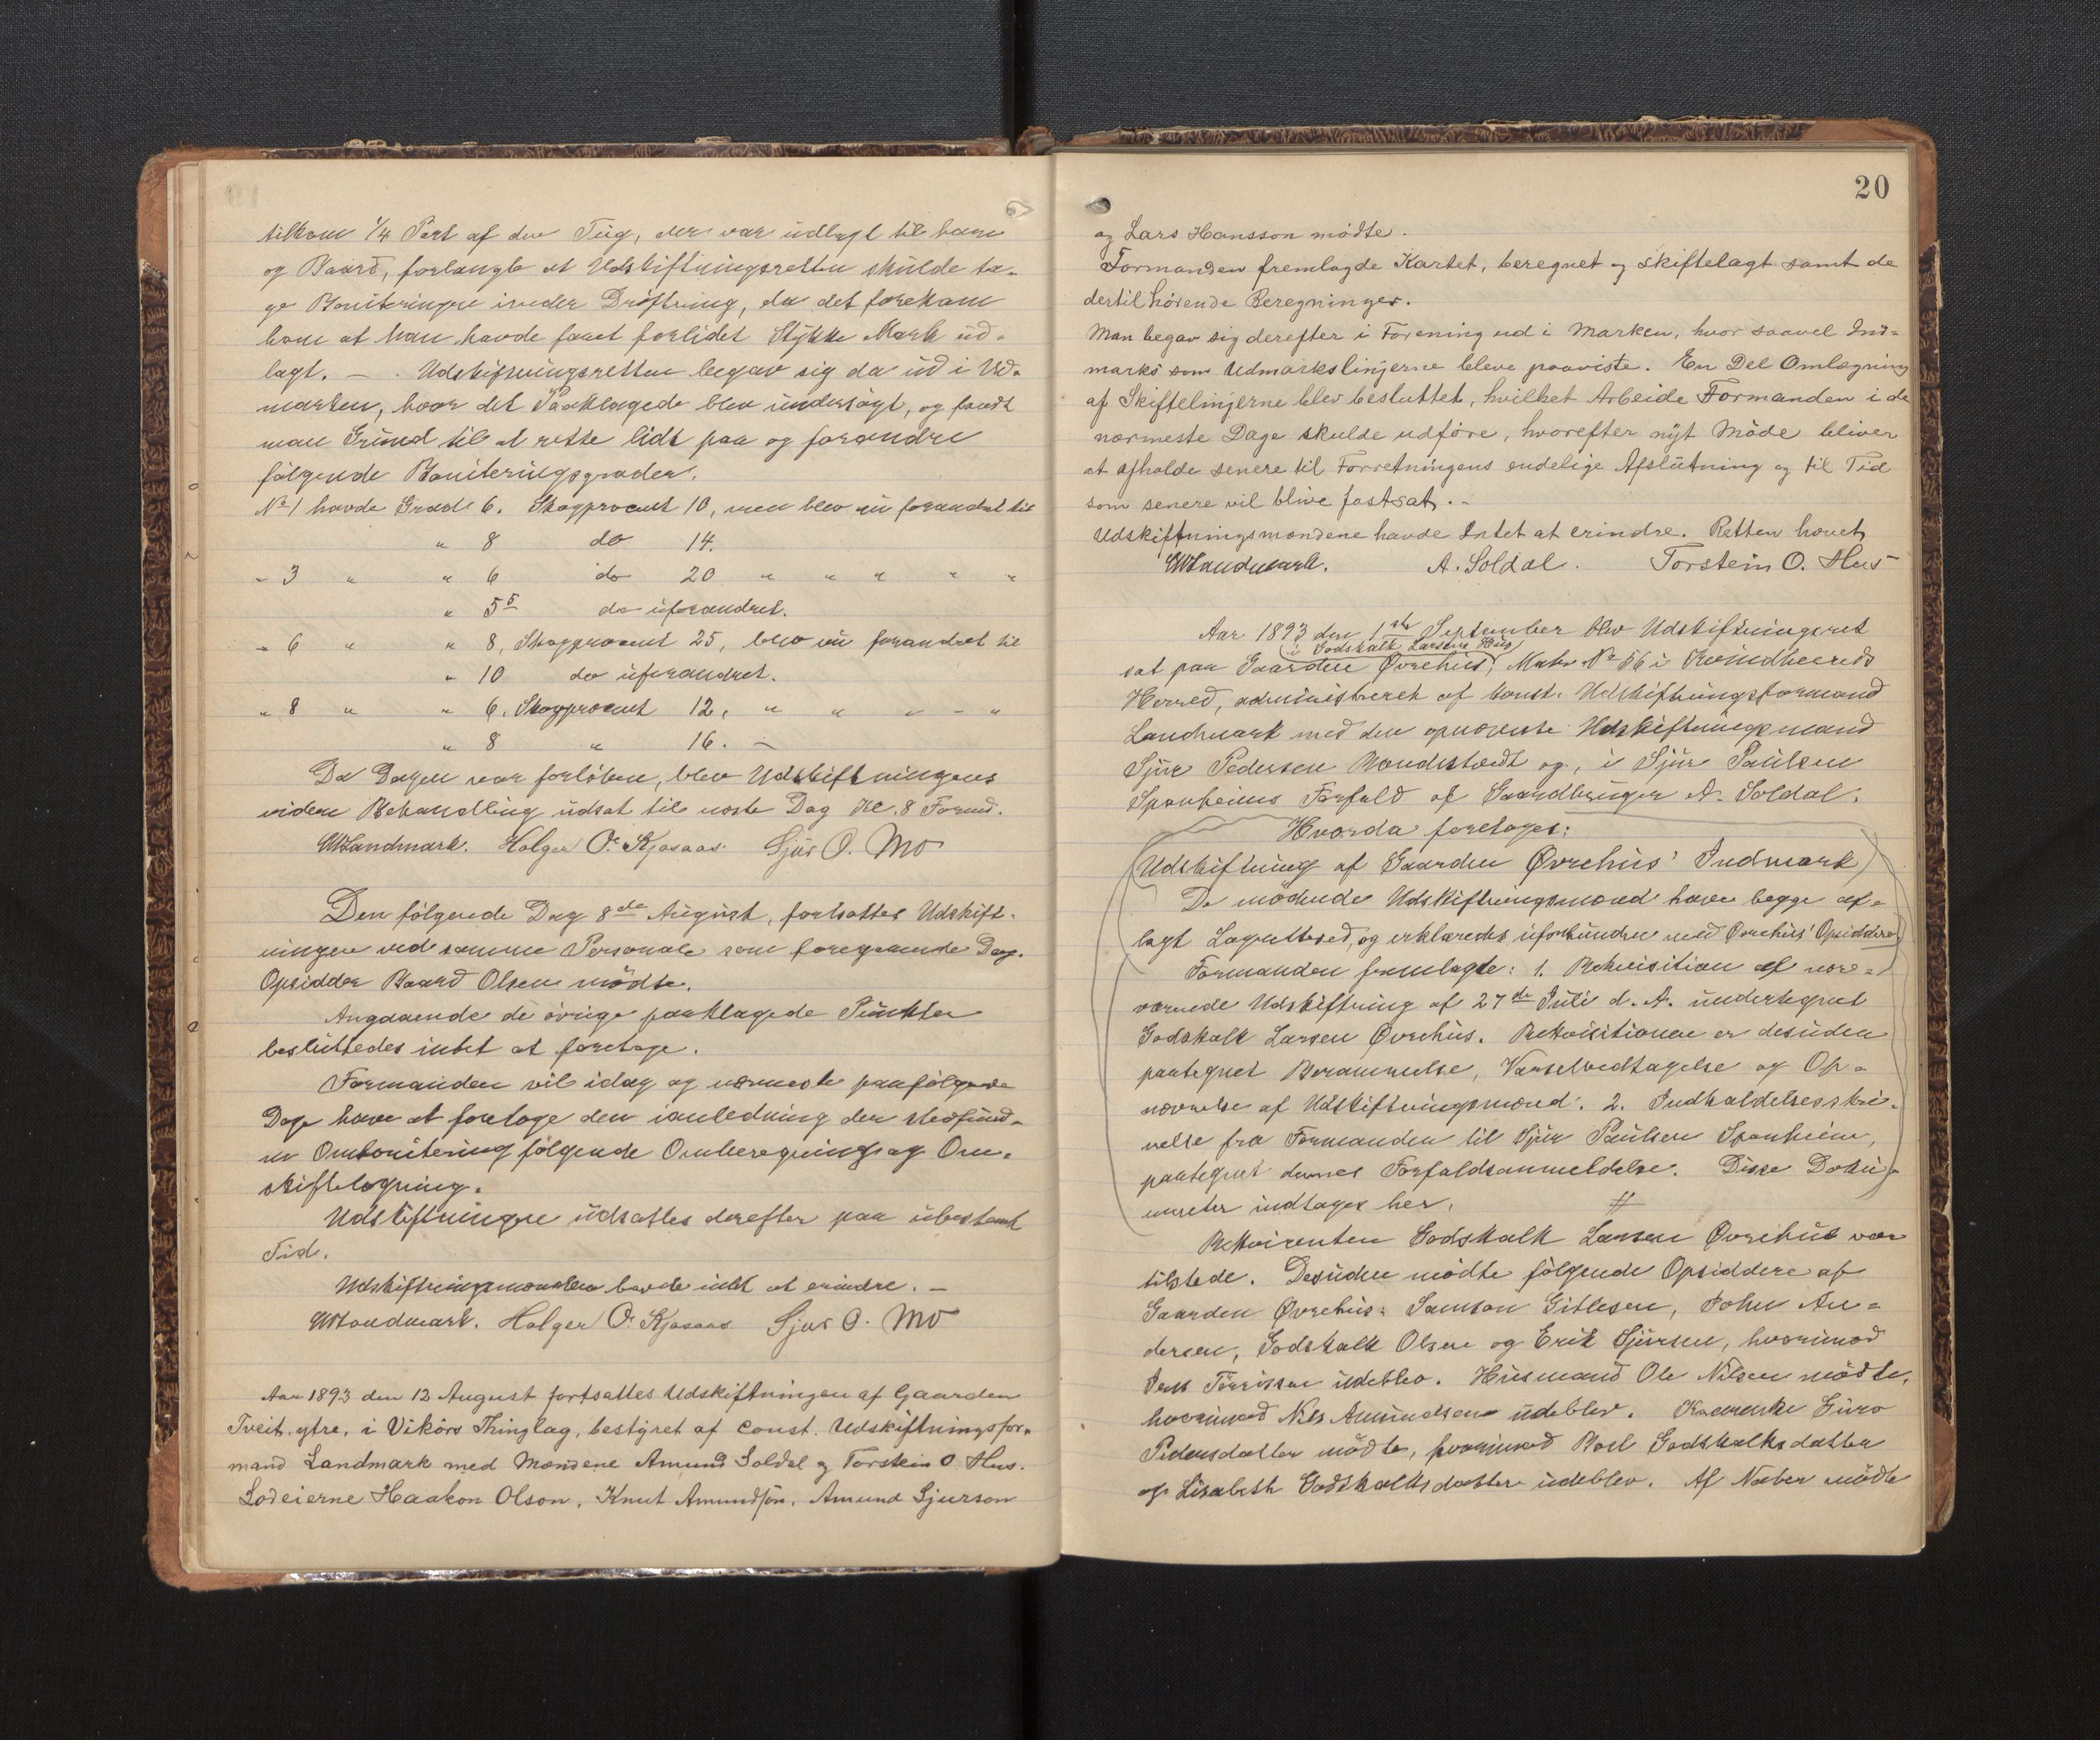 tilkom 1/4 Part af den Teig, der var udlagt til ham
og Baard, forlangte at Udskiftningsretten skulde ta-
ge Boniteringen under Drøftning, da det forekom
ham at han havde faaet forlidet Stykke Mark ud-
lagt. — . Udskiftningsretten begav sig da ud i Ud-
marken, hvor det Paaklagede blev undersøgt, og fandt
man Grund til at rette lidt paa og forandre
følgende Boniteringsgrader.
No 1 havde Grad 6. Skogprocent 10, men blev nu forandret til
" 8 do 14.
" 3 " " 6 do 20 " " " " "
" 5 5 do uforandret.
" 6 " " 8, Skogprocent 25, blev nu forandret til
" 10 do uforandret.
" 8 " " 6. Skogprocent 12, " " " - "
" 8 " 16. —
Da Dagen var forløben, blev Udskiftningens
videre Behandling udsat til næste Dag Kl. 8 Formd.
Landmark. Holger O. Kjosaas. Sjur O. Mo
Den følgende Dag 8de August, fortsattes Udskift-
ningen ved samme Personale som foregaaende Dag.
Opsidder Baard Olsen mødte.
Angaaende de øvrige paaklagede Punkter
besluttedes intet at foretage.
Formanden vil idag og nærmeste paafølgende
Dage have at foretage den i anledning den stedfund-
ne Ombonitering følgende Omberegning og Om-
skiftelægning.
Udskiftningen udsattes derefter paa ubestemt
Tid.
Udskiftningsmændene havde intet at erindre. —
Landmark. Holger O. Kjosaas. Sjur O. Mo
Aar 1893 den 12 August fortsattes Udskiftningen af Gaarden
Tveit ytre, i Vikørs Thinglag, bestyret af const. Udskiftningsfor-
mand Landmark med Mændene Amund Soldal og Torstein O. Hus.
Lodeierne Haakon Olson, Knut Amundsøn, Amund Sjurson
20
og Lars Hansson mødte.
Formanden fremlagde Kartet, beregnet og skiftelagt samt de
dertil hørende Beregninger.
Man begav sig derefter i Forening ud i Marken, hvor saavel Ind-
marks som Udmarkslinjerne bleve paaviste. En Del Omlægning
af Skiftelinjerne blev besluttet, hvilket Arbeide Formanden i de
nærmeste Dage skulde udføre, hvorefter nyt Møde bliver
at afholde senere til Forretningens endelige Afslutning og til Tid
som senere vil blive fastsat. -
Udskiftningsmændene havde Intet at erindre. Retten hævet
Landmark. A. Soldal. Torstein O. Hus
Aar 1893 den 1ste September blev Udskiftningsret
i Godskalk Larsens Hus
sat paa Gaarden Øvrehus, Matr. No 56 i Kvindherreds
Herred, administreret af const. Udskiftningsformand
Landmark med den opnævnte Udskiftningsmand
Sjur Pedersen og, i Sjur Paulsen
Spanheims Forfald af Gaardbruger A. Soldal.
Hvorda foretages:
Udskiftning af Gaarden Øvrehus' Indmark
De mødende Udskiftningsmænd have begge af-
lagt Lagretteed, og erklæredes uforbundne med Øvrehus' Opsiddere.
Formanden fremlagde: 1. Rekvisition af nær-
værende Udskiftning af 27de Juli d. A. undertegnet
Godskalk Larsen Øvrehus. Rekvisitionen er desuden
paategnet Berammelse, Varselvedtagelse og Op-
nævnelse af Udskiftningsmænd. 2. Indkaldelsesskri-
velse fra Formanden til Sjur Paulsen Spanheim,
paategnet dennes Forfaldsanmeldelse. Disse Doku-
menter indtages her. #
Rekvirenten Godskalk Larsen Øvrehus var
tilstede. Desuden mødte følgende Opsiddere af
Gaarden Øvrehus: Samson Gitlesen, John An-
dersen, Godskalk Olsen og Erik Sjursen, hvorimod
Jens Tørrissen udeblev. Husmand Ole Nilsen mødte,
hvorimod Nils Amundsen udeblev. Kaarenke Guro
Pedersdatter mødte, hvorimod Godskalksdatter
og Lisabeth Godskalksdatter udeblev. Af Naboer mødte